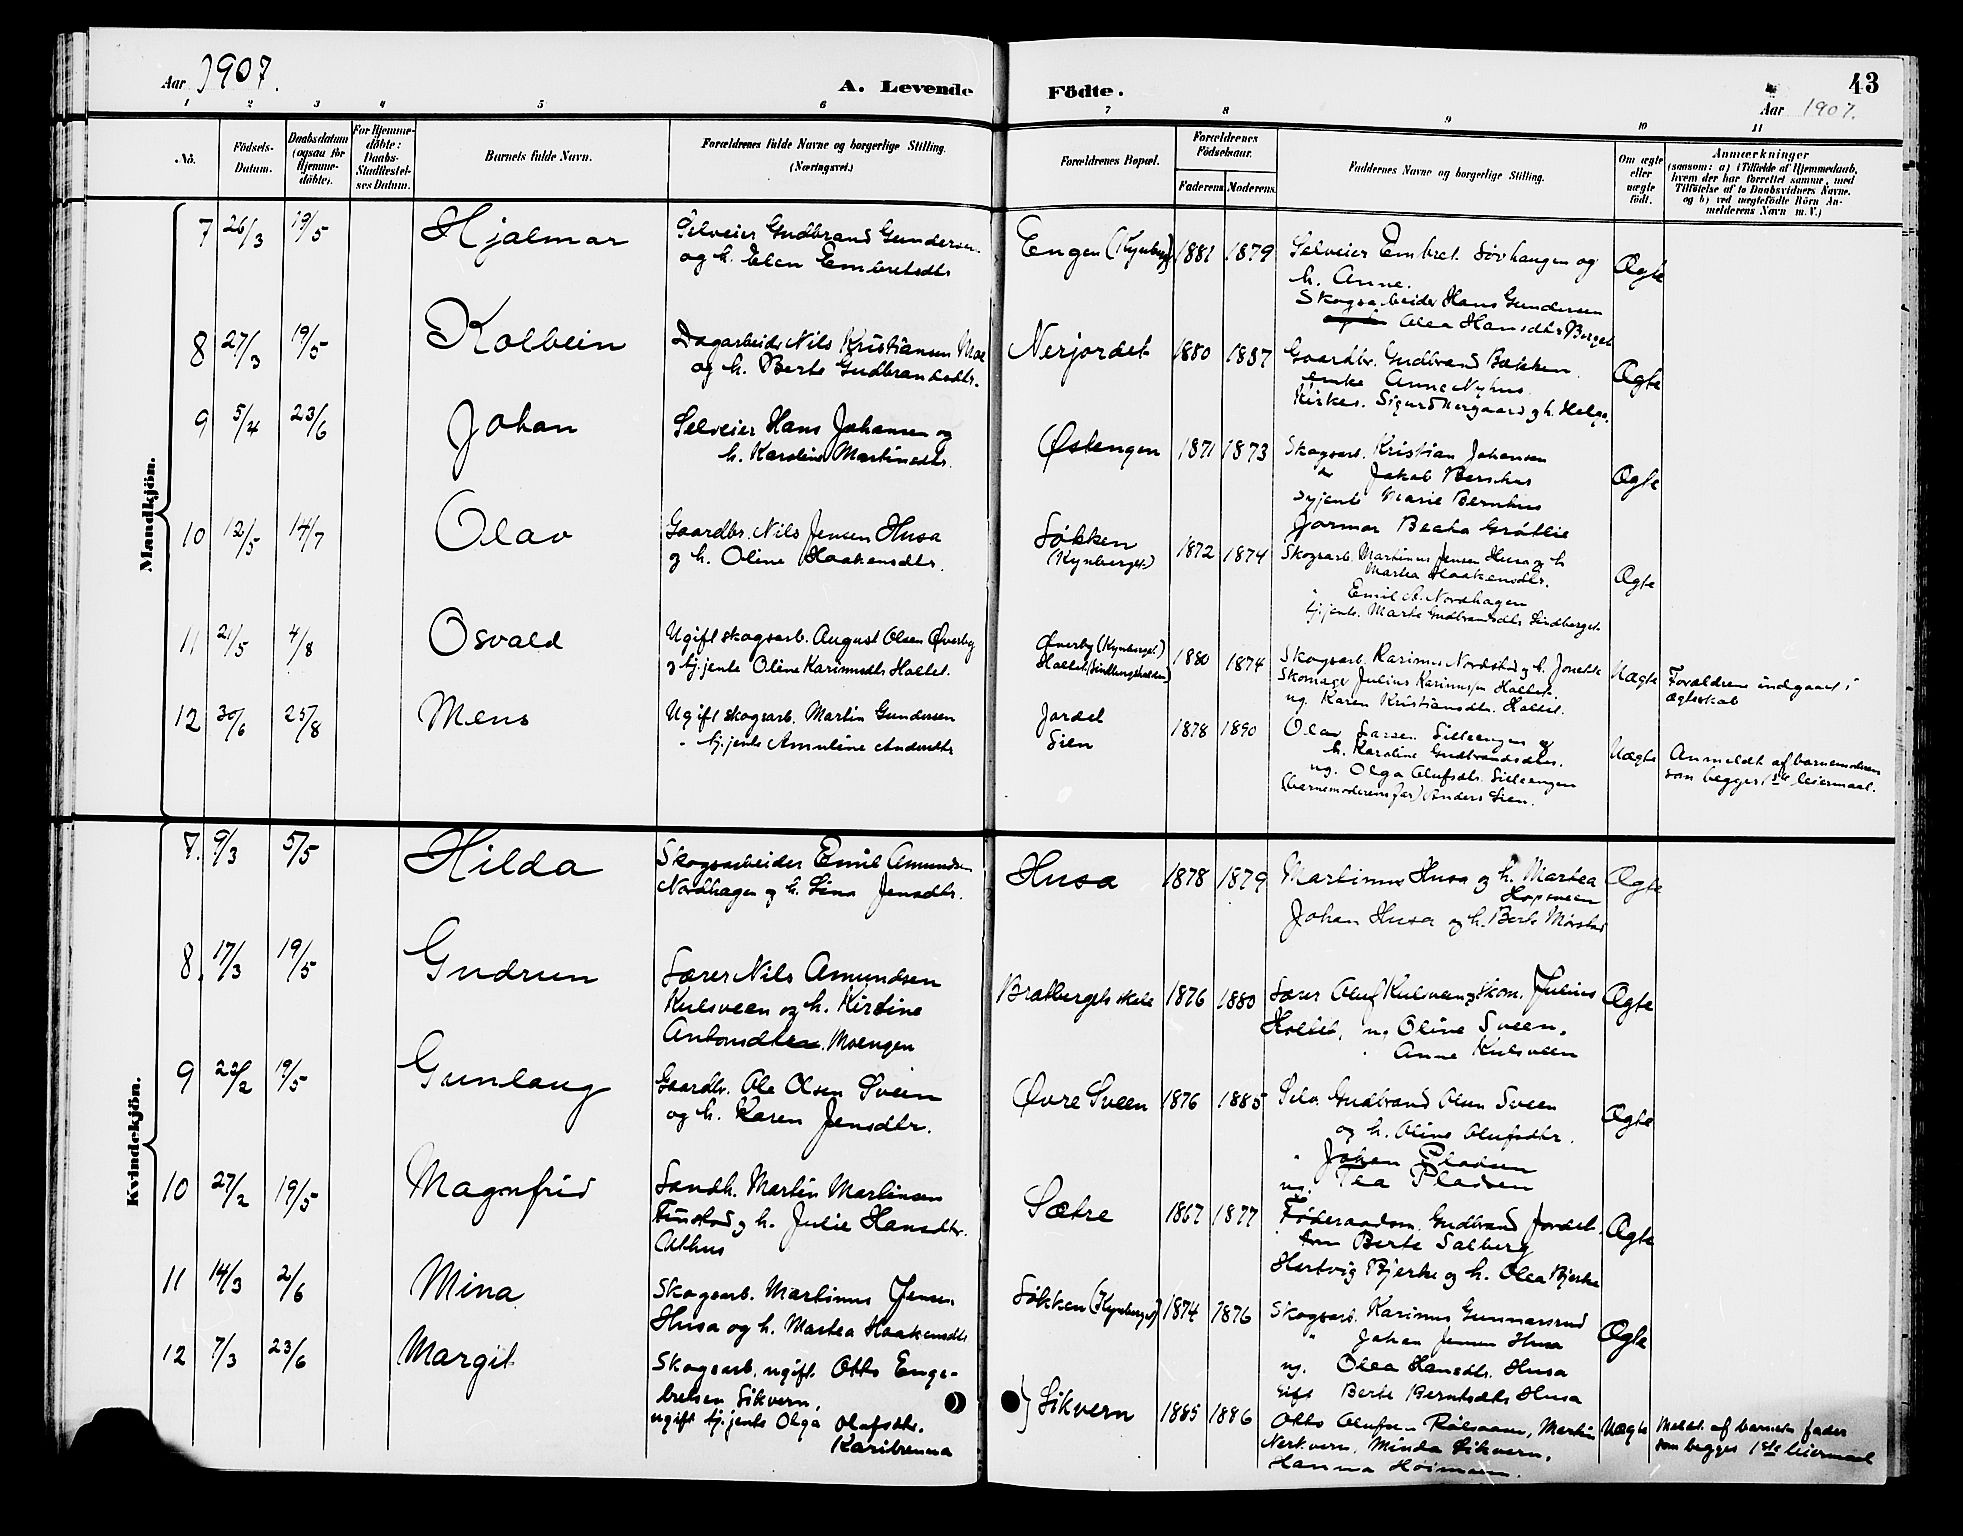 Aar 1907.
A. Levende Födte.
43
Aar 1907.
1 2 3 4 5 6 7 8 9 10 11
No.
Födsels-
Datum.
Daabsdatum
(ogsaa for
Hjemme-
döbte).
For Hjemme-
döbte:
Daabs-
Stadfæstel-
ses Datum.
Barnets fulde Navn.
Forældrenes fulde Navne og borgerlige Stilling.
(Næringsvei.)
Forældrenes Bopæl.
Forældrenes
Födselsaar.
Faderens
Moderens.
Faddernes Navne og borgerlige Stilling.
Om ægte
eller
uægte
födt.
Anmærkninger
(saasom: a) i Tilfælde af Hjemmedaab,
hvem der har forrettet samme, med
Tilföielse af to Daabsvidners Navne.
og b) ved uægtefödte Börn An-
melderens Navn m. V.)
Mandkjön.
7 26/3 19/5 Hjalmar
Selveier Gudbrand Gundersen
og h. Elen Embretsdtr
Engen (Kynberg) 1881 1879
Selveier Embret Søvhaugen og
h. Anne.
Skogsarbeider Hans Gundersen
Olea Hansdtr Berget
Ægte
8 27/3 19/5 Kolbein
Dagarbeid. Nils Kristiansen Moe
og h. Berte Gudbrandsdtr.
Nerjordet 1880 1887
Gaardbr. Gudbrand Bakken
enke Anne Nyhus
Kirkes. Sigurd Nergaard og h. Helga.
Ægte
9 5/4 23/6 Johan
Selveier Hans Johansen og
h. Karoline Martinsdtr.
Østengen 1871 1873
Skogsarb. Kristian Johansen
Jakob Bernhus
Marie Bernhus
Jormor Beata Grøtlie
Ægte
10 12/5 14/7 Olav
Gaardbr. Nils Jensen Husa
og h. Oline Haakensdtr.
Søkken
(Kynberget) 1872 1874
Skogsarb. Martinus Jensen Husa og h
Martea Haakensdtr.
Emil A. Nordhagen
tj.jente. Marte Gudbrandsdtr Lindberget
Ægte
11 21/5 4/8 Osvald
Ugift skogsarb. August Olsen Øverby
og tj.jente Oline Karinusdtr Hollet.
Øverby (Kynberget) 1880 1874
Skogsarb. Karinus Nordstad og h. Jonette
Skomager Julius Karinussen Hollet.
ug. Karen Kristiansdtr. Hollet.
Uægte
Forældrene indgaaet i
ægteskab
12 30/6 25/8 Mens
Ugift skogsarb. Martin Gundersen
" tj.jente Amuline Andersdtr
Jordet
Sien 1878 1890
Olav Larsen Silleengen og
h. Karoline Gudbrandsdtr.
ug. Olga Olufsdtr. Silleengen
(barnemoderens far) Anders Sien.
Uægte
Anmeldt af barnemoderen
som begges 1ste leiermaal.
Kvindekjön.
7. 9/3 5/5 Hilda
Skogsarbeider Emil Amundsen
Nordhagen og h. Lina Jensdtr.
Husa 1878 1879
Martinus Husa og h. Martea
Hopsveen
Johan Husa og h. Berte Morstad
Ægte
8. 17/3 19/5 Gudrun
Lærer Nils Amundsen
Kulsveen og h. Kirstine
Antonsdtr. Moengen
Bratbergets skole 1876 1880
Lærer Oluf Kulsveen, skom. Julius
Hollet, ug. Oline Sveen.
" Anne Kulsveen
Ægte
9 22/2 19/5 Gunlaug
Gaardbr. Ole Olsen Svein
og h. Karen Jensdtr.
Øvre Sveen 1876 1885
Selv. Gudbrand Olsen Sveen
og h. Oline Olufsdtr.
" Johan Pladsen
ug. Tea Pladsen
Ægte
10 27/2 19/5 Magnfrid
Landh. Martin Martinsen
Finstad og h. Julie Hansdtr.
Athus
Sætre 1867 1877
Føderaadsm. Gudbrand Jordet.
Berte Salberg
Hartvig Bjerke og h. Olea Bjerke
Ægte
11 14/3 2/6 Mina
Skogsarb. Martinus Jensen
Husa og h. Martea Haakensdtr
Søkken (Kynberget) 1874 1876
Skogsarb. Karinus Gunnarsrud
" Johan Jensen Husa
ug. Olea Hansdtr. Husa
Gift Berte Berntsdtr Husa
Ægte
12 7/3 23/6 Margit
Skogsarb. ugift Otto Enge-
bretsen Sikvern.
ugift tj.jente Olga Olafsdtr.
Karibrenna
} Sikvern 1885 1886
Otto Olufsen Martin
Nerkvern, Minda Sikvern.
Hanna Hoimoen.
Uægte
Meldt af barnets fader
som begges 1ste leiermaal